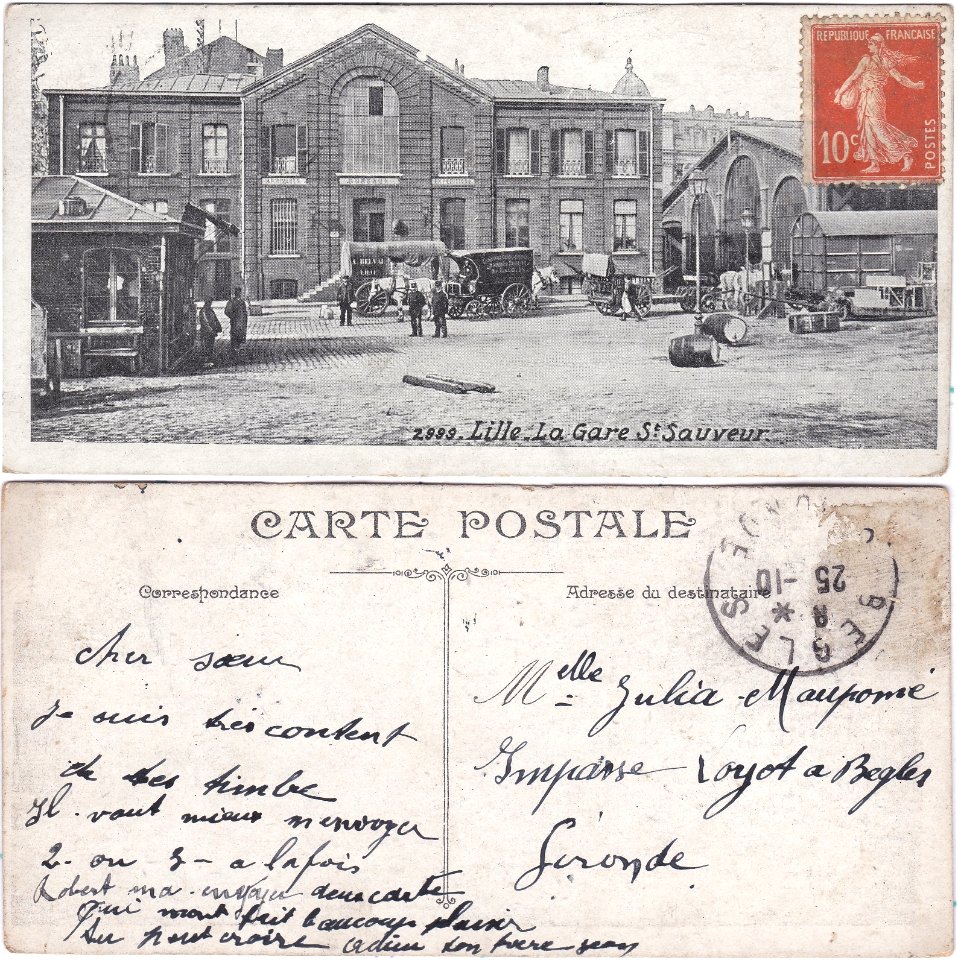 REPUBLIQUE FRANÇAISE
10c POSTES
2999. Lille. La Gare St Sauveur.
CARTE POSTALE
Correspondance
Adresse du destinataire
BEGLES
25 -10
cher sœur
Je suis très content
de tes timbre
Il vaut mieux m'envoyer
2 - ou 3 - a la fois
Robert ma envoyer deux carte
Qui mont fait beaucoup plaisir
tu peut croire adieu ton frere jean
Melle Julia Maupomé
Impasse Loyot a Begles
Gironde